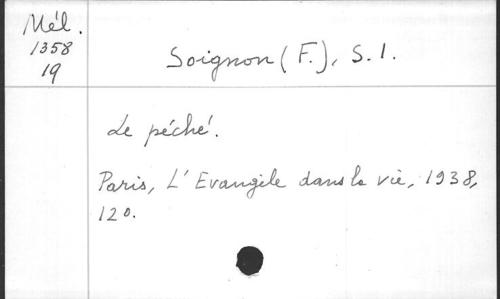 Mél.
1358
19
Soignon (F.), S.I.
Le péché.
Paris, L'Evangile dans la vie, 1938,
12°.